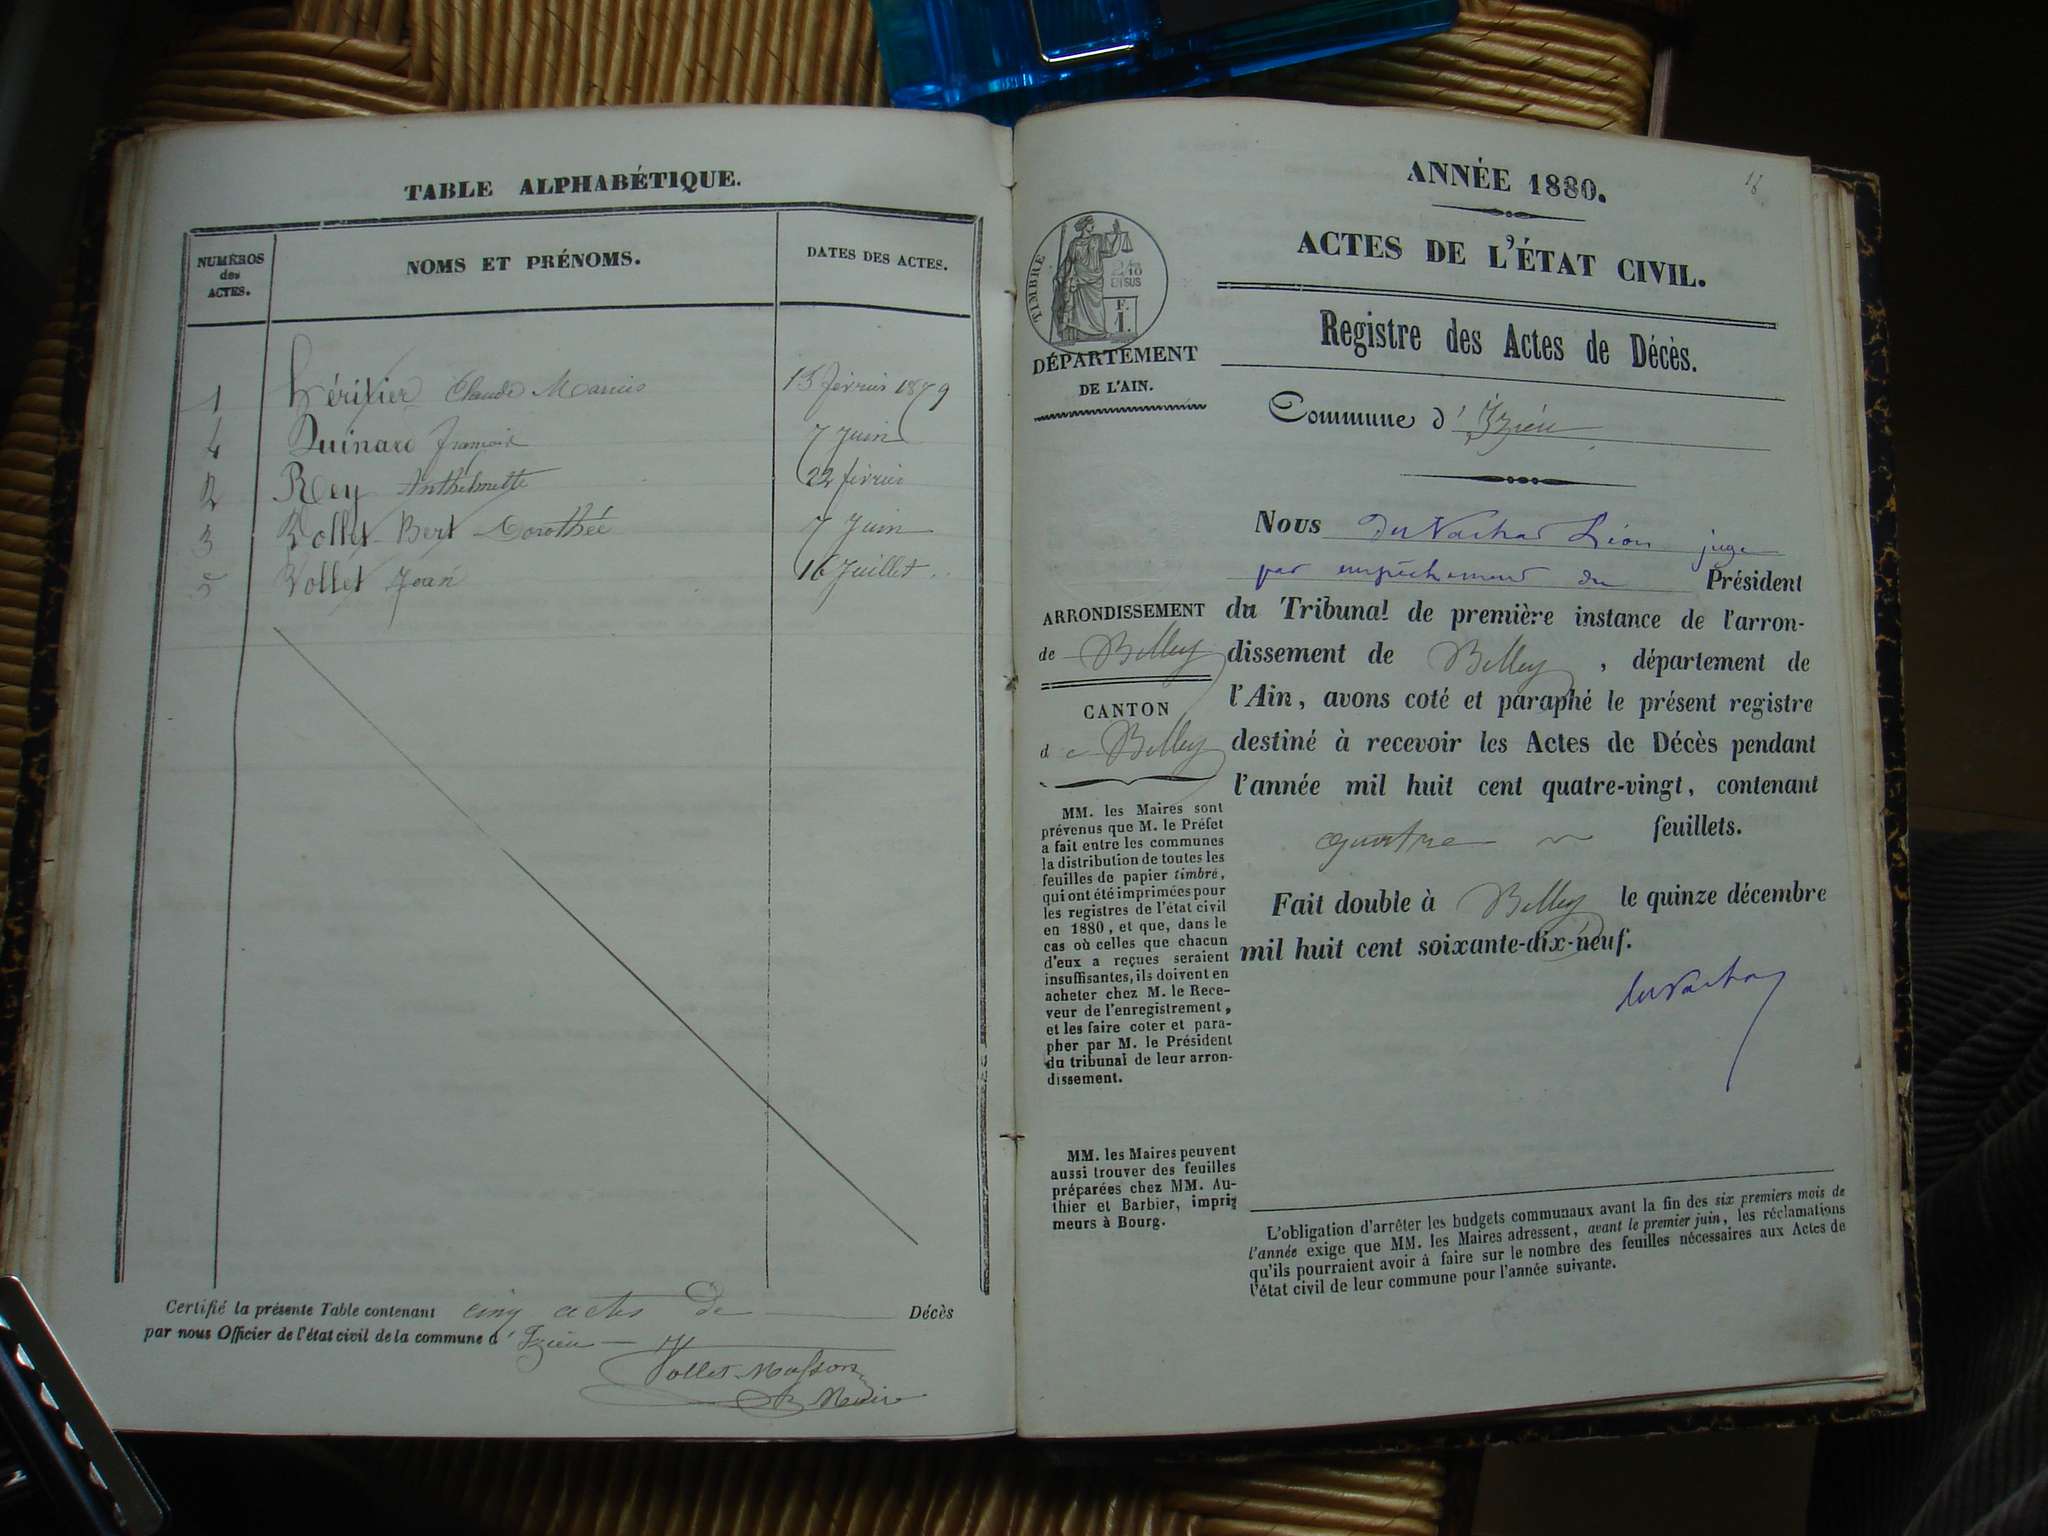 TABLE ALPHABÉTIQUE.
NUMÉROS des ACTES. NOMS ET PRÉNOMS. DATES DES ACTES.
1 héritier Claude Marius 15 février 1879
4 Quinard françois 7 Juin
2 Rey Anthelmette 22 février
3 Vollet-Bert Dorothée 7 Juin
5 Vollet Jean 16 Juillet
Certifié la présente Table contenant cinq actes de Décès
par nous Officier de l'état civil de la commune d' Izieu
Vollet-Masson
Maire
18
ANNÉE 1880.
ACTES DE L'ÉTAT CIVIL.
TIMBRE
2/10
EN SUS
F.
1.
DÉPARTEMENT
DE L'AIN.
Registre des Actes de Décès.
Commune d' Izieu
Nous Léon juge
par empêchement du Président
du Tribunal de première instance de l'arron-
dissement de Belley, département de
l'Ain, avons coté et paraphé le présent registre
destiné à recevoir les Actes de Décès pendant
l'année mil huit cent quatre-vingt, contenant
quatre feuillets.
Fait double à Belley le quinze décembre
mil huit cent soixante-dix-neuf.
ARRONDISSEMENT
de Belley
CANTON
de Belley
MM. les Maires sont
prévenus que M. le Préfet
a fait entre les communes
la distribution de toutes les
feuilles de papier timbré,
qui ont été imprimées pour
les registres de l'état civil
en 1880, et que, dans le
cas où celles que chacun
d'eux a reçues seraient
insuffisantes, ils doivent en
acheter chez M. le Rece-
veur de l'enregistrement,
et les faire coter et para-
pher par M. le Président
du tribunal de leur arron-
dissement.
MM. les Maires peuvent
aussi trouver des feuilles
préparées chez MM. Au-
thier et Barbier, impri-
meurs à Bourg.
L'obligation d'arrêter les budgets communaux avant la fin des six premiers mois de
l'année exige que MM. les Maires adressent, avant le premier juin, les réclamations
qu'ils pourraient avoir à faire sur le nombre des feuilles nécessaires aux Actes de
l'état civil de leur commune pour l'année suivante.